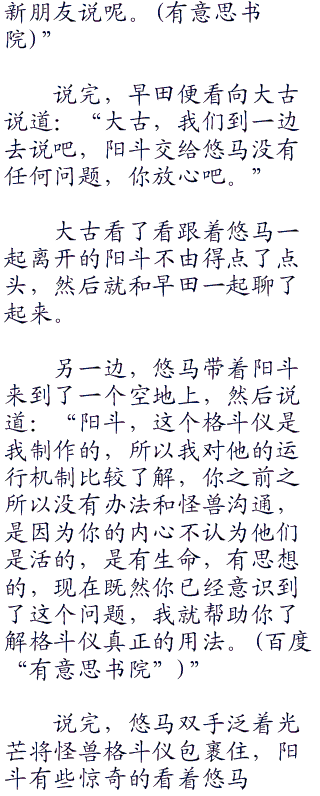 新朋友说呢。(有意思书
院)”
说完，早田便看向大古
说道：“大古，我们到一边
去说吧，阳斗交给悠马没有
任何问题，你放心吧。”
大古看了看跟着悠马一
起离开的阳斗不由得点了点
头，然后就和早田一起聊了
起来。
另一边，悠马带着阳斗
来到了一个空地上，然后说
道：“阳斗，这个格斗仪是
我制作的，所以我对他的运
行机制比较了解，你之前之
所以没有办法和怪兽沟通，
是因为你的内心不认为他们
是活的，是有生命，有思想
的，现在既然你已经意识到
了这个问题，我就帮助你了
解格斗仪真正的用法。(百度
“有意思书院”)”
说完，悠马双手泛着光
芒将怪兽格斗仪包裹住，阳
斗有些惊奇的看着悠马